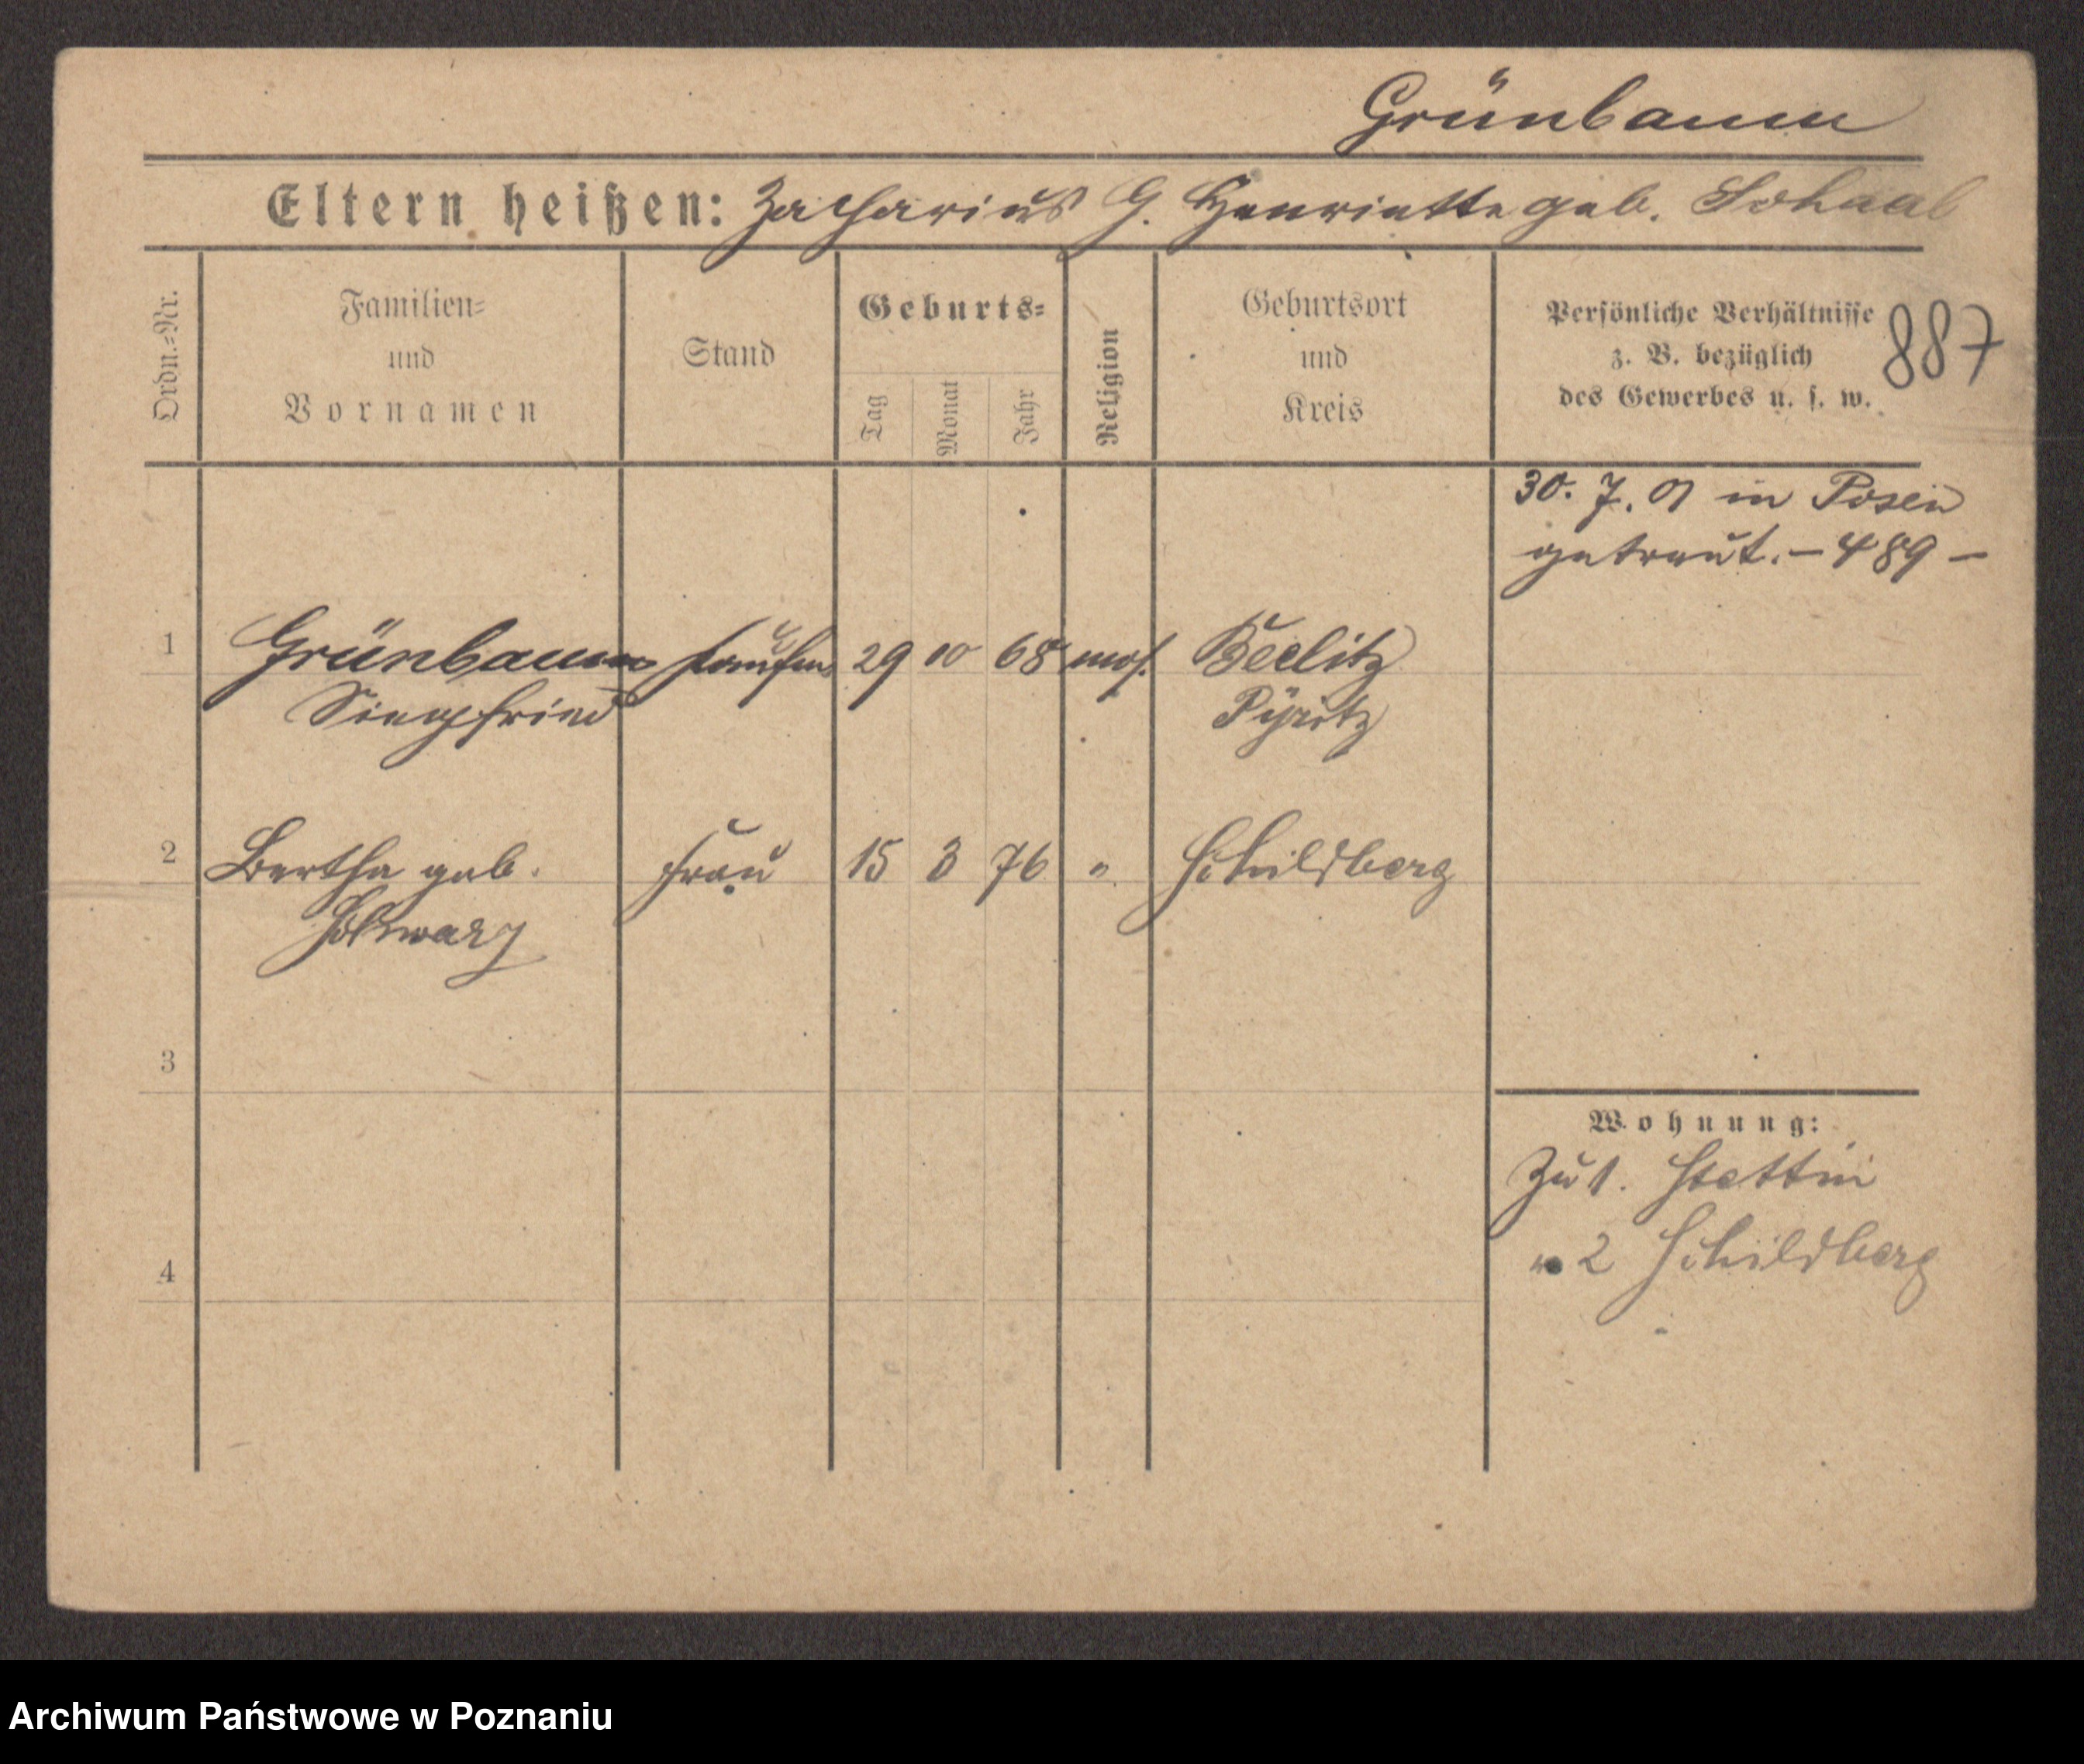 Grünbaum
Eltern heißen: Zacharius G. Henriette geb. Schaal
Ordn.-Nr.
Familien-
und
Vornamen
Stand
Geburts-
Tag
Monat
Jahr
Religion
Geburtsort
und
Kreis
Persönliche Verhältnisse
z. B. bezüglich
des Gewerbes u. s. w.
887
30. 7. 01 in Posen
getraut. – 489 –
1 Grünbaum Kaufm 29 10 68 mos. Beelitz
Siegfried Pyritz
2 Bertha geb. Frau 15 3 76 " Schildberg
Schwarz
3
Wohnung:
Zu 1. Stettin
" 2 Schildberg
4
Archiwum Państwowe w Poznaniu